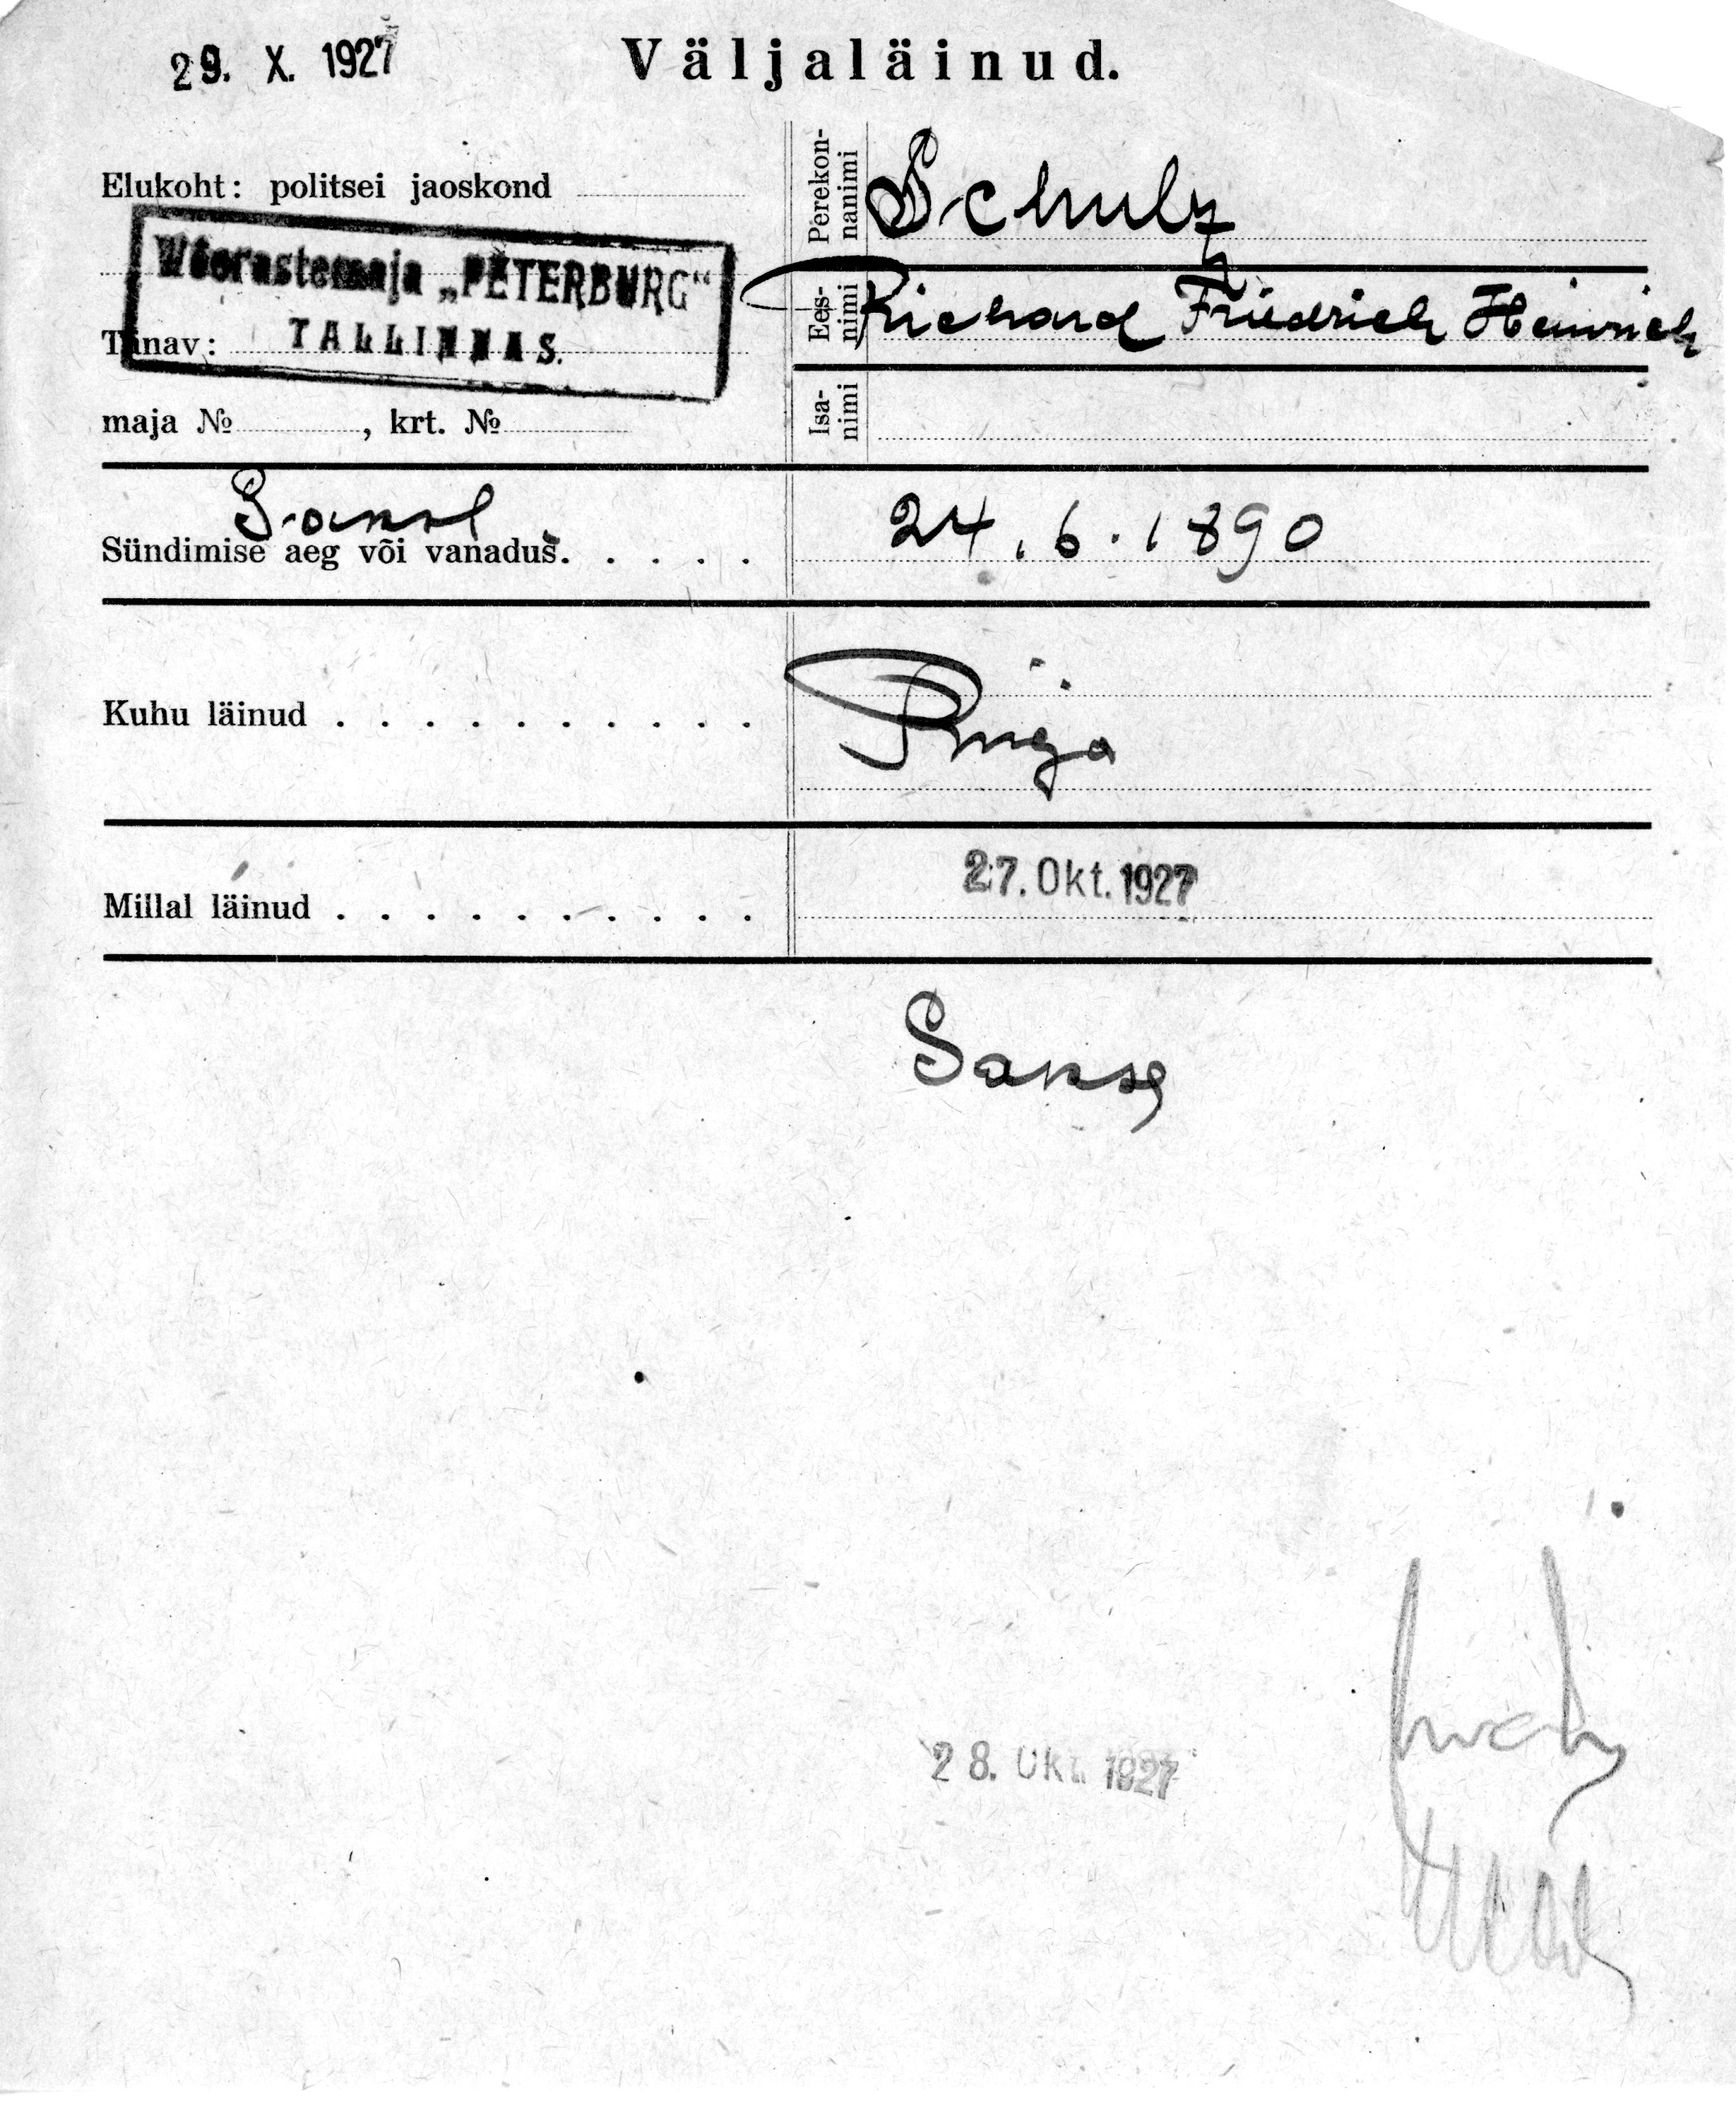 29. X. 1927
Väljaläinud.
Elukoht: politsei jaoskond
Võõrastemaja „PETERBURG“
TALLINNAS.
Tänav:
maja № , krt. №
Perekonnanimi Schulz
Eesnimi Richard Friedrich Heinrich
Isanimi
Sündimise aeg või vanadus. . . . . 24.6.1890
Kuhu läinud . . . . . . . . . . Riiga
Millal läinud . . . . . . . . . . 27. Okt. 1927
Saksa
28. Okt. 1927